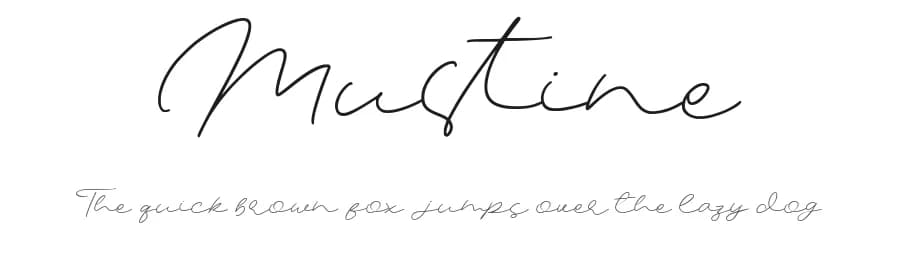 Mustine
The quick brown fox jumps over the lazy dog